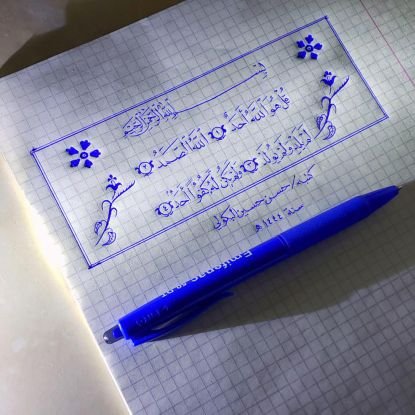 بسم الله الرحمن الرحيم
قل هو الله أحد ١ الله الصمد ٢
لم يلد ولم يولد ٣ ولم يكن له كفوا أحد ٤
كتبه / حسن حسين
سنة ١٤٤٤ هـ